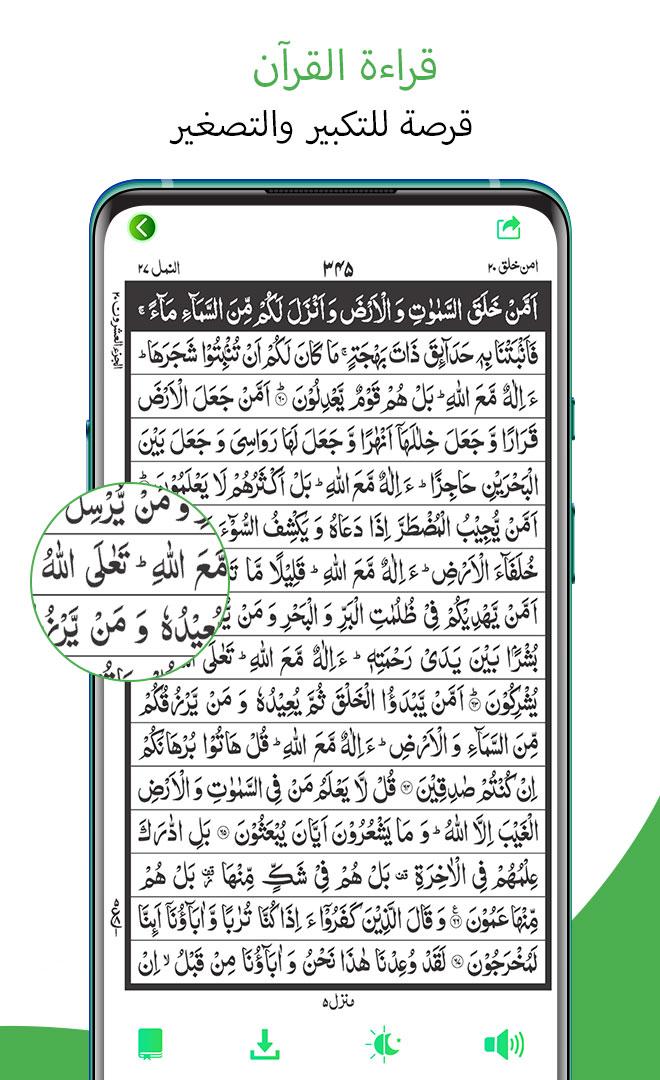 قراءة القرآن
قرصة للتكبير والتصغير
امن خلق ۲۰ ۳۴۵ النمل ۲۷
اَمَّنْ خَلَقَ السَّمٰوٰتِ وَ الْاَرْضَ وَ اَنْزَلَ لَكُمْ مِّنَ السَّمَآءِ مَآءً ۚ
فَاَنْۢبَتْنَا بِهٖ حَدَآىِٕقَ ذَاتَ بَهْجَةٍ ۚ مَا كَانَ لَكُمْ اَنْ تُنْۢبِتُوْا شَجَرَهَا ؕ
ءَاِلٰهٌ مَّعَ اللّٰهِ ؕ بَلْ هُمْ قَوْمٌ یَّعْدِلُوْنَ ۶۰ اَمَّنْ جَعَلَ الْاَرْضَ
قَرَارًا وَّ جَعَلَ خِلٰلَهَاۤ اَنْهٰرًا وَّ جَعَلَ لَهَا رَوَاسِیَ وَ جَعَلَ بَیْنَ
الْبَحْرَیْنِ حَاجِزًا ؕ ءَاِلٰهٌ مَّعَ اللّٰهِ ؕ بَلْ اَكْثَرُهُمْ لَا یَعْلَمُوْنَ
اَمَّنْ یُّجِیْبُ الْمُضْطَرَّ اِذَا دَعَاهُ وَ یَكْشِفُ السُّوْٓءَ
خُلَفَآءَ الْاَرْضِ ؕ ءَاِلٰهٌ مَّعَ اللّٰهِ ؕ قَلِیْلًا مَّا
اَمَّنْ یَّهْدِیْكُمْ فِیْ ظُلُمٰتِ الْبَرِّ وَ الْبَحْرِ وَ مَنْ
بُشْرًۢا بَیْنَ یَدَیْ رَحْمَتِهٖ ؕ ءَاِلٰهٌ مَّعَ اللّٰهِ ؕ تَعٰلَی
یُشْرِكُوْنَ ۶۳ اَمَّنْ یَّبْدَؤُا الْخَلْقَ ثُمَّ یُعِیْدُهٗ وَ مَنْ یَّرْزُقُكُمْ
مِّنَ السَّمَآءِ وَ الْاَرْضِ ؕ ءَاِلٰهٌ مَّعَ اللّٰهِ ؕ قُلْ هَاتُوْا بُرْهَانَكُمْ
اِنْ كُنْتُمْ صٰدِقِیْنَ ۶۴ قُلْ لَّا یَعْلَمُ مَنْ فِی السَّمٰوٰتِ وَ الْاَرْضِ
الْغَیْبَ اِلَّا اللّٰهُ ؕ وَ مَا یَشْعُرُوْنَ اَیَّانَ یُبْعَثُوْنَ ۶۵ بَلِ ادّٰرَكَ
عِلْمُهُمْ فِی الْاٰخِرَةِ بَلْ هُمْ فِیْ شَكٍّ مِّنْهَا بَلْ هُمْ
مِّنْهَا عَمُوْنَ ۶۶ وَ قَالَ الَّذِیْنَ كَفَرُوْۤا ءَاِذَا كُنَّا تُرٰبًا وَّ اٰبَآؤُنَاۤ اَىِٕنَّا
لَمُخْرَجُوْنَ ۶۷ لَقَدْ وُعِدْنَا هٰذَا نَحْنُ وَ اٰبَآؤُنَا مِنْ قَبْلُ ۙ اِنْ
منزل ۵
الجزء العشرون ۲۰
وَ مَنْ یُّرْسِلُ
مَّعَ اللّٰهِ ؕ تَعٰلَی اللّٰهُ
یُعِیْدُهٗ وَ مَنْ یَّرْزُ